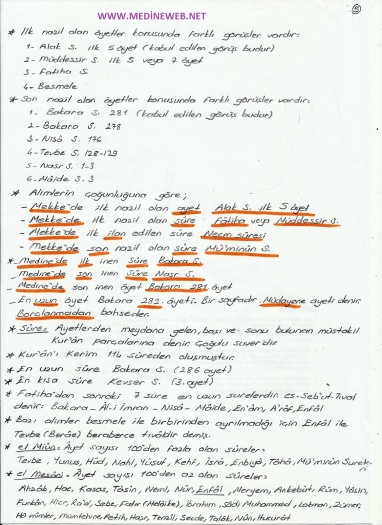 www.MEDİNEWEB.NET
5
* İlk nazil olan âyetler konusunda farklı görüşler vardır:
1- Alak S. ilk 5 âyet (kabul edilen görüş budur)
2- Müddessir S. ilk 5 veya 7 âyet
3- Fatiha S.
4- Besmele
* Son nazil olan âyetler konusunda farklı görüşler vardır:
1- Bakara S. 281 (kabul edilen görüş budur)
2- Bakara S. 278
3- Nisâ S. 176
4- Tevbe S. 128-129
5- Nasr S. 1-3
6- Mâide S. 3
* Alimlerin çoğunluğuna göre;
- Mekke'de ilk nazil olan ayet Alak S. ilk 5 âyet
- Mekke'de ilk nazil olan sûre Fâtiha veya Müddessir S.
- Mekke'de ilk ilan edilen sûre Necm sûresi
- Mekke'de son nazil olan sûre Mü'minûn S.
* Medine'de ilk inen sûre Bakara S.
- Medine'de son inen sûre Nasr S.
- Medine'de son inen âyet Bakara 281. âyet
- En uzun âyet Bakara 282. âyeti. Bir sayfadır. Müdayene ayeti denir.
Borçlanmadan bahseder.
* Sûre: Ayetlerden meydana gelen, başı ve sonu bulunan müstakil
Kur'ân parçalarına denir. Çoğulu suverdir.
* Kur'ân'ı Kerim 114 sûreden oluşmuştur.
* En uzun sûre Bakara S. (286 ayet)
* En kısa sûre Kevser S. (3. ayet)
* Fatiha'dan sonraki 7 sure en uzun surelerdir. es-Seb'ut-Tıval
denir: Bakara - Âl-i İmran - Nisâ - Mâide, En'âm, A'râf, Enfâl
* Bazı alimler besmele ile birbirinden ayrılmadığı için Enfâl ile
Tevbe (Berâe) beraberce tıvâldir demiş.
* el Miûn: Âyet sayısı 100'den fazla olan sûreler:
Tevbe, Yunus, Hûd, Nahl, Yûsuf, Kehf, İsrâ, Enbiyâ, Tâhâ, Mü'minûn Sureleri
* el Mesâni: Âyet sayısı 100'den az olan sûreler:
Ahzâb, Hac, Kasas, Tâsin, Neml, Nûr, Enfâl, Meryem, Ankebût, Rûm, Yâsin,
Furkân, Hicr, Ra'd, Sebe, Fatır (Melâike), İbrahim, Sâd, Muhammed, Lokman, Zümer,
Hâ mîmler, Mümtehine, Fetih, Haşr, Tenzîl, Secde, Talâk, Nûn, Hucurât